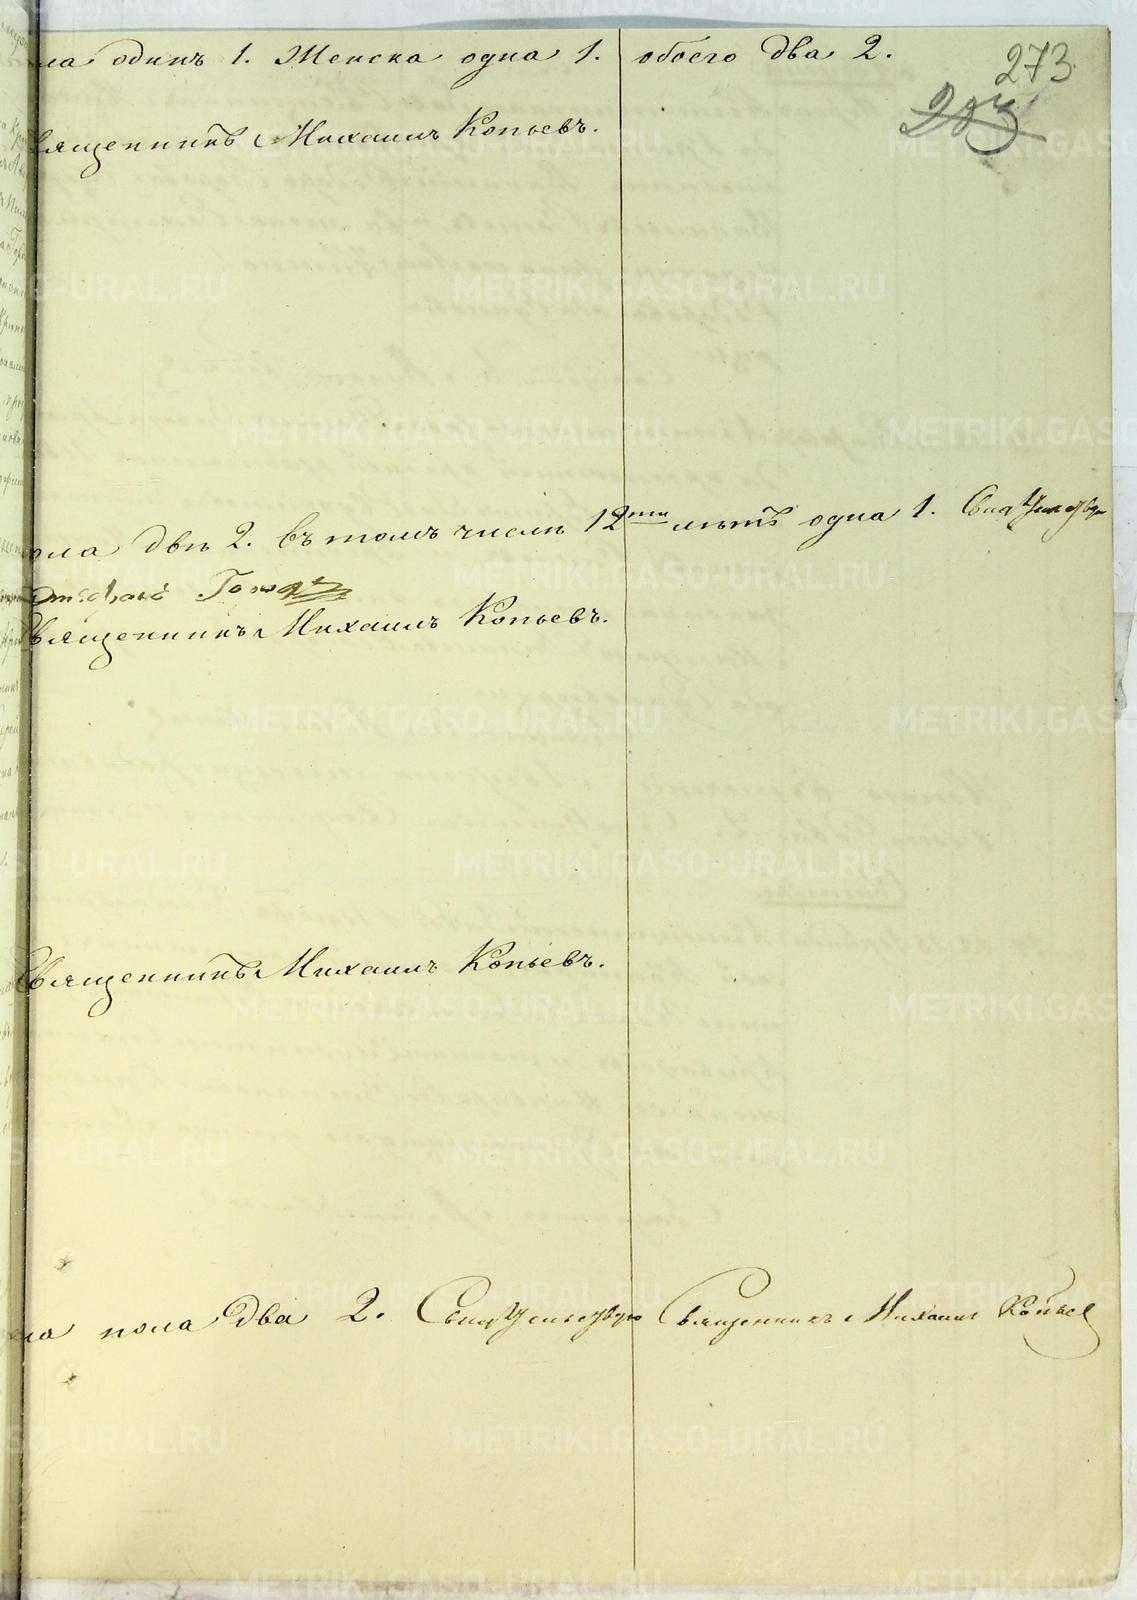 ла одинъ 1. Женска одна 1. обоего два 2.
273
Священникъ Михаилъ Копьевъ.
пола двѣ 2. въ томъ числѣ 12ти лѣтъ одна 1.
Священникъ Михаилъ Копьевъ.
Священникъ Михаилъ Копьевъ.
ка пола два 2. Свидѣтельствую Священникъ Михаилъ Копьев
METRIKI.GASO-URAL.RU